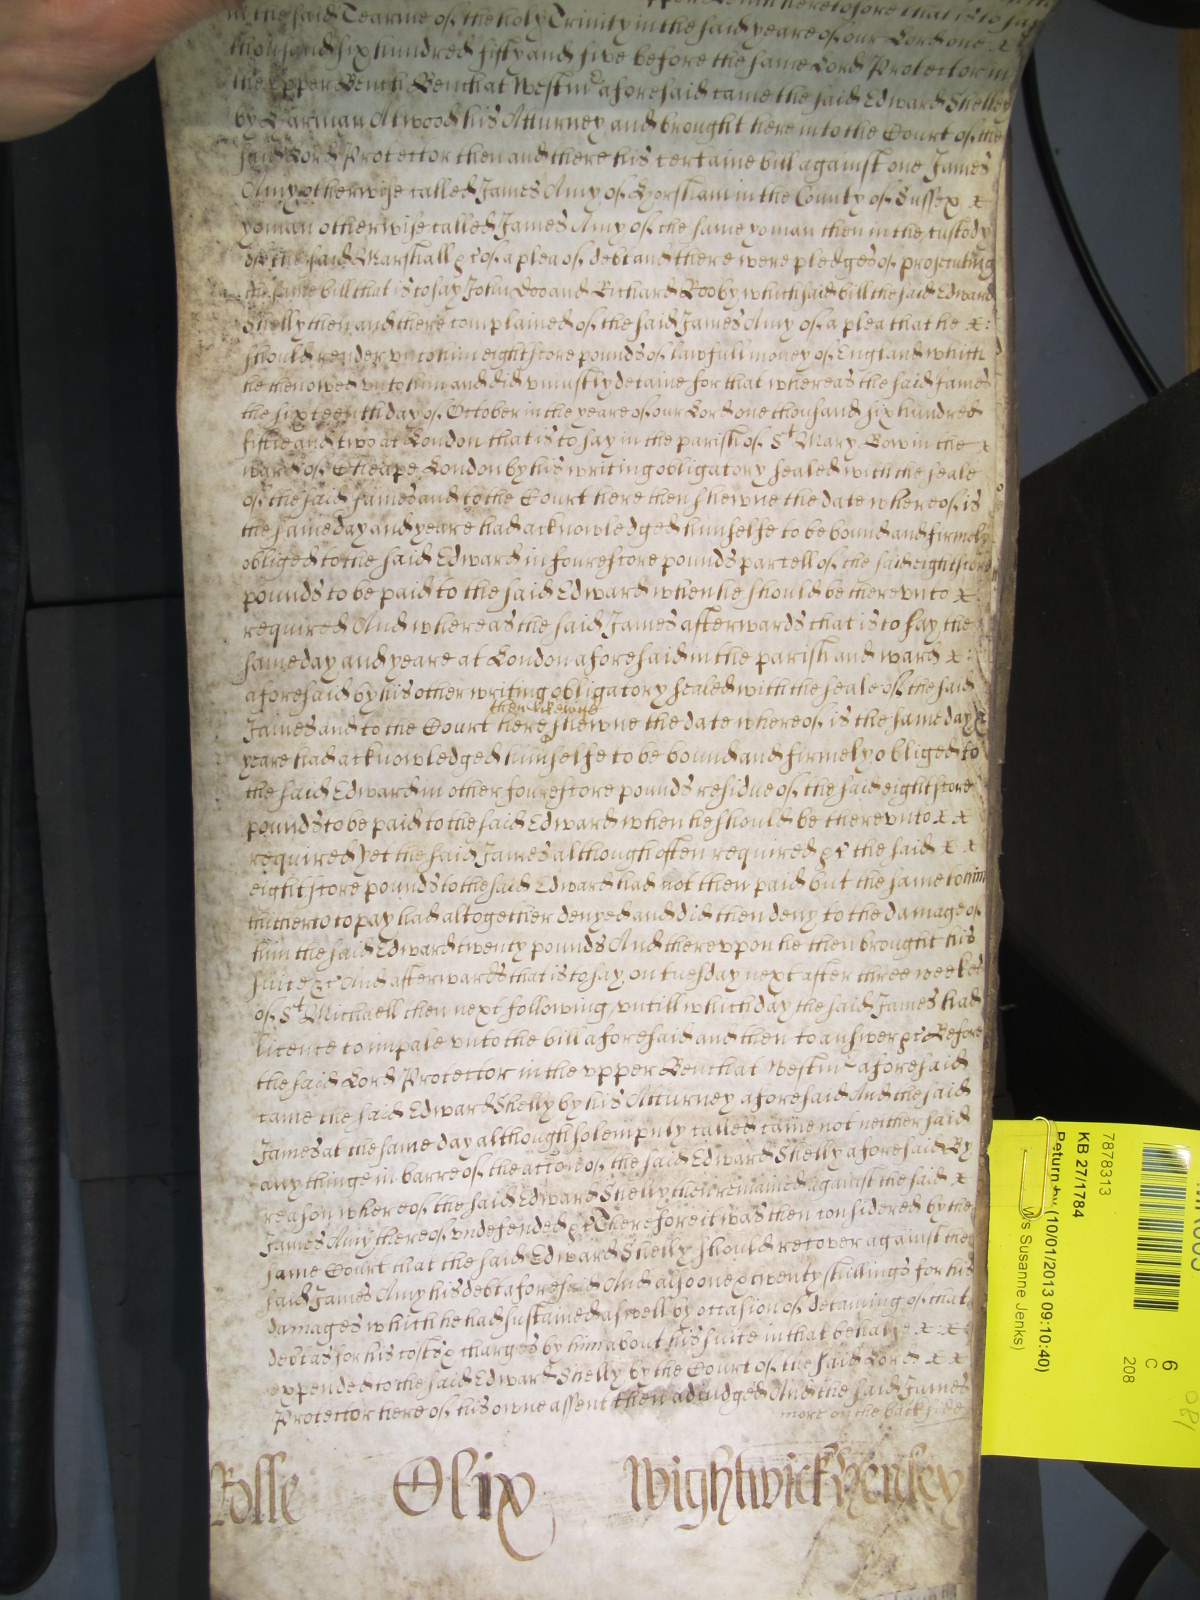 upper Bench heretofore that is to say
in the said Tearme of the holy Trinity in the said yeare of our Lord one x
thousand six hundred fifty and five before the same Lord Protector in
the upper Bench at Westmr aforesaid came the said Edward Shelley
by Atwood his Atturney and brought here into the Court of the
said Lord Protector then and there his certaine bill against one James
Amy otherwise called James Amy of Horsham in the County of Sussex x
yoman otherwise called James Amy of the same yoman then in the custody
of the said Marshall &c of a plea of debt and there were pledges of prosecuting
the same bill that is to say John Doo and Richard Roo by which said bill the said Edward
Shelly then and there complained of the said James Amy of a plea that he x:
should render unto him eightscore pounds of lawfull money of England which
he then owed unto him and did uniustly detaine for that whereas the said James
the sixteenth day of October in the yeare of our Lord one thousand six hundred
fiftie and two at London that is to say in the parish of St Mary Bow in the x
ward of Cheape London by his writing obligatory sealed with the seale
of the said James and to the Court here then shewne the date whereof is
the same day and yeare had acknowledged himselfe to be bound and firmely
obliged to the said Edward in fourescore pounds parcell of the said eightscore
pounds to be paid to the said Edward when he should be thereunto x:
required And whereas the said James afterwards that is to say the
same day and yeare at London aforesaid in the parish and ward x:
aforesaid by his other writing obligatory sealed with the seale of the said
then likewise
James and to the Court here shewne the date whereof is the same day &
yeare had acknowledged himselfe to be bound and firmely obliged to
the said Edward in other fourescore pounds residue of the said eightscore
pounds to be paid to the said Edward when he should be thereunto x x
required yet the said James although often required &c the said x x
eightscore pounds to the said Edward had not then paid but the same to him
hitherto to pay had altogether denyed and did then deny to the damage of
him the said Edward twenty pounds And thereupon he then brought his
suite &c And afterwards that is to say on tuesday next after three weekes
of St Michaell then next following untill which day the said James had
licence to imparle unto the bill aforesaid and then to answer &c Before
the said Lord Protector in the upper Bench at Westmr aforesaid
came the said Edward Shelly by his Atturney aforesaid And the said
James at the same day although solempnly called came not neither said
any thinge in barre of the accon of the said Edward Shelly aforesaid By
reason whereof the said Edward Shelly then remained against the said x
James Amy thereof undefended &c Therefore it was then considered by the
same Court that the said Edward Shelly should recover against the
said James Amy his debt aforesaid And also one & twenty shillings for his
damages which he had sustained as well by occasion of detaining of that
debt as for his costs & charges by him about his suite in that behalfe x:x
expended to the said Edward Shelly by the Court of the said Lord x x
Protector here of his owne assent then adiudged And the said James
more on the back side
Rolle Olix Wightwick Henley
7878313
KB 27/1784
Return by (10/01/2013 09:10:40)
Ms Susanne Jenks)
6
C
208